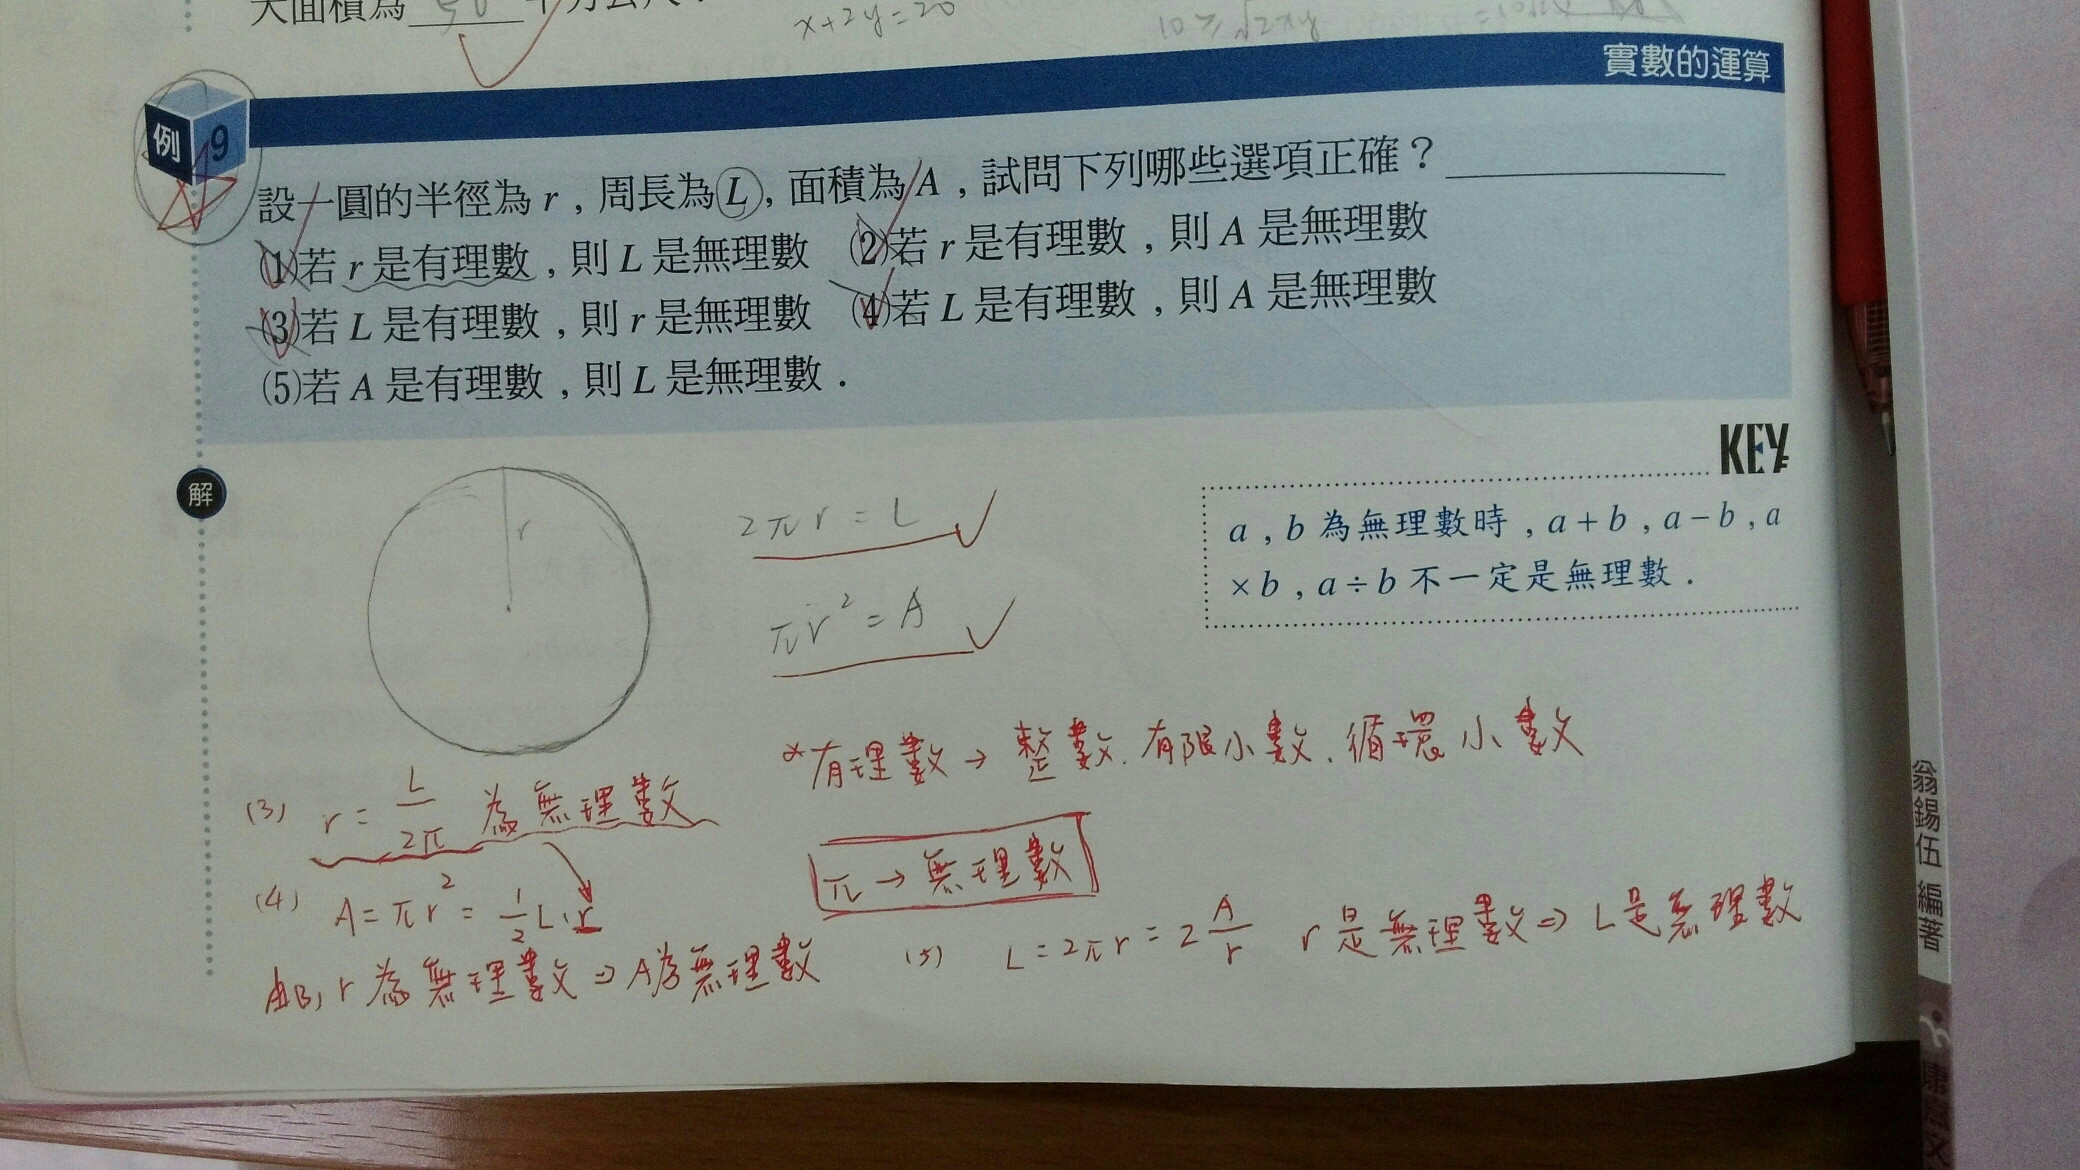 大面積為 50 平方公尺.
x+2y=20
10≥√2xy
實數的運算
例 9
設一圓的半徑為 r , 周長為 L , 面積為 A , 試問下列哪些選項正確？
(1)若 r 是有理數 , 則 L 是無理數 (2)若 r 是有理數 , 則 A 是無理數
(3)若 L 是有理數 , 則 r 是無理數 (4)若 L 是有理數 , 則 A 是無理數
(5)若 A 是有理數 , 則 L 是無理數 .
KEY
解
r
2πr = L
πr² = A
a , b 為無理數時 , a + b , a − b , a
× b , a ÷ b 不一定是無理數 .
*有理數→整數.有限小數.循環小數
(3) r = L/2π 為無理數
π→無理數
(4) A = πr² = 1/2 L·r
r為無理數⇒A為無理數
(5) L = 2πr = 2 A/r r是無理數⇒L是無理數
翁錫伍 編著